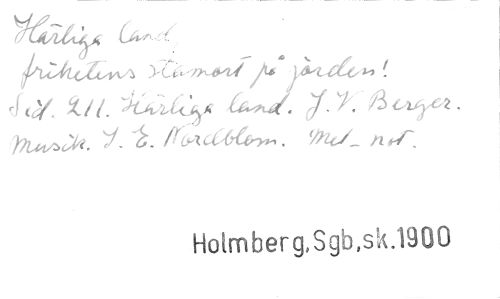 Härliga land
frihetens stamort på jorden!
Sid. 211. Härliga land. J. V. Berger.
Musik. J. E. Nordblom. Mel_not.
Holmberg,Sgb,sk.1900